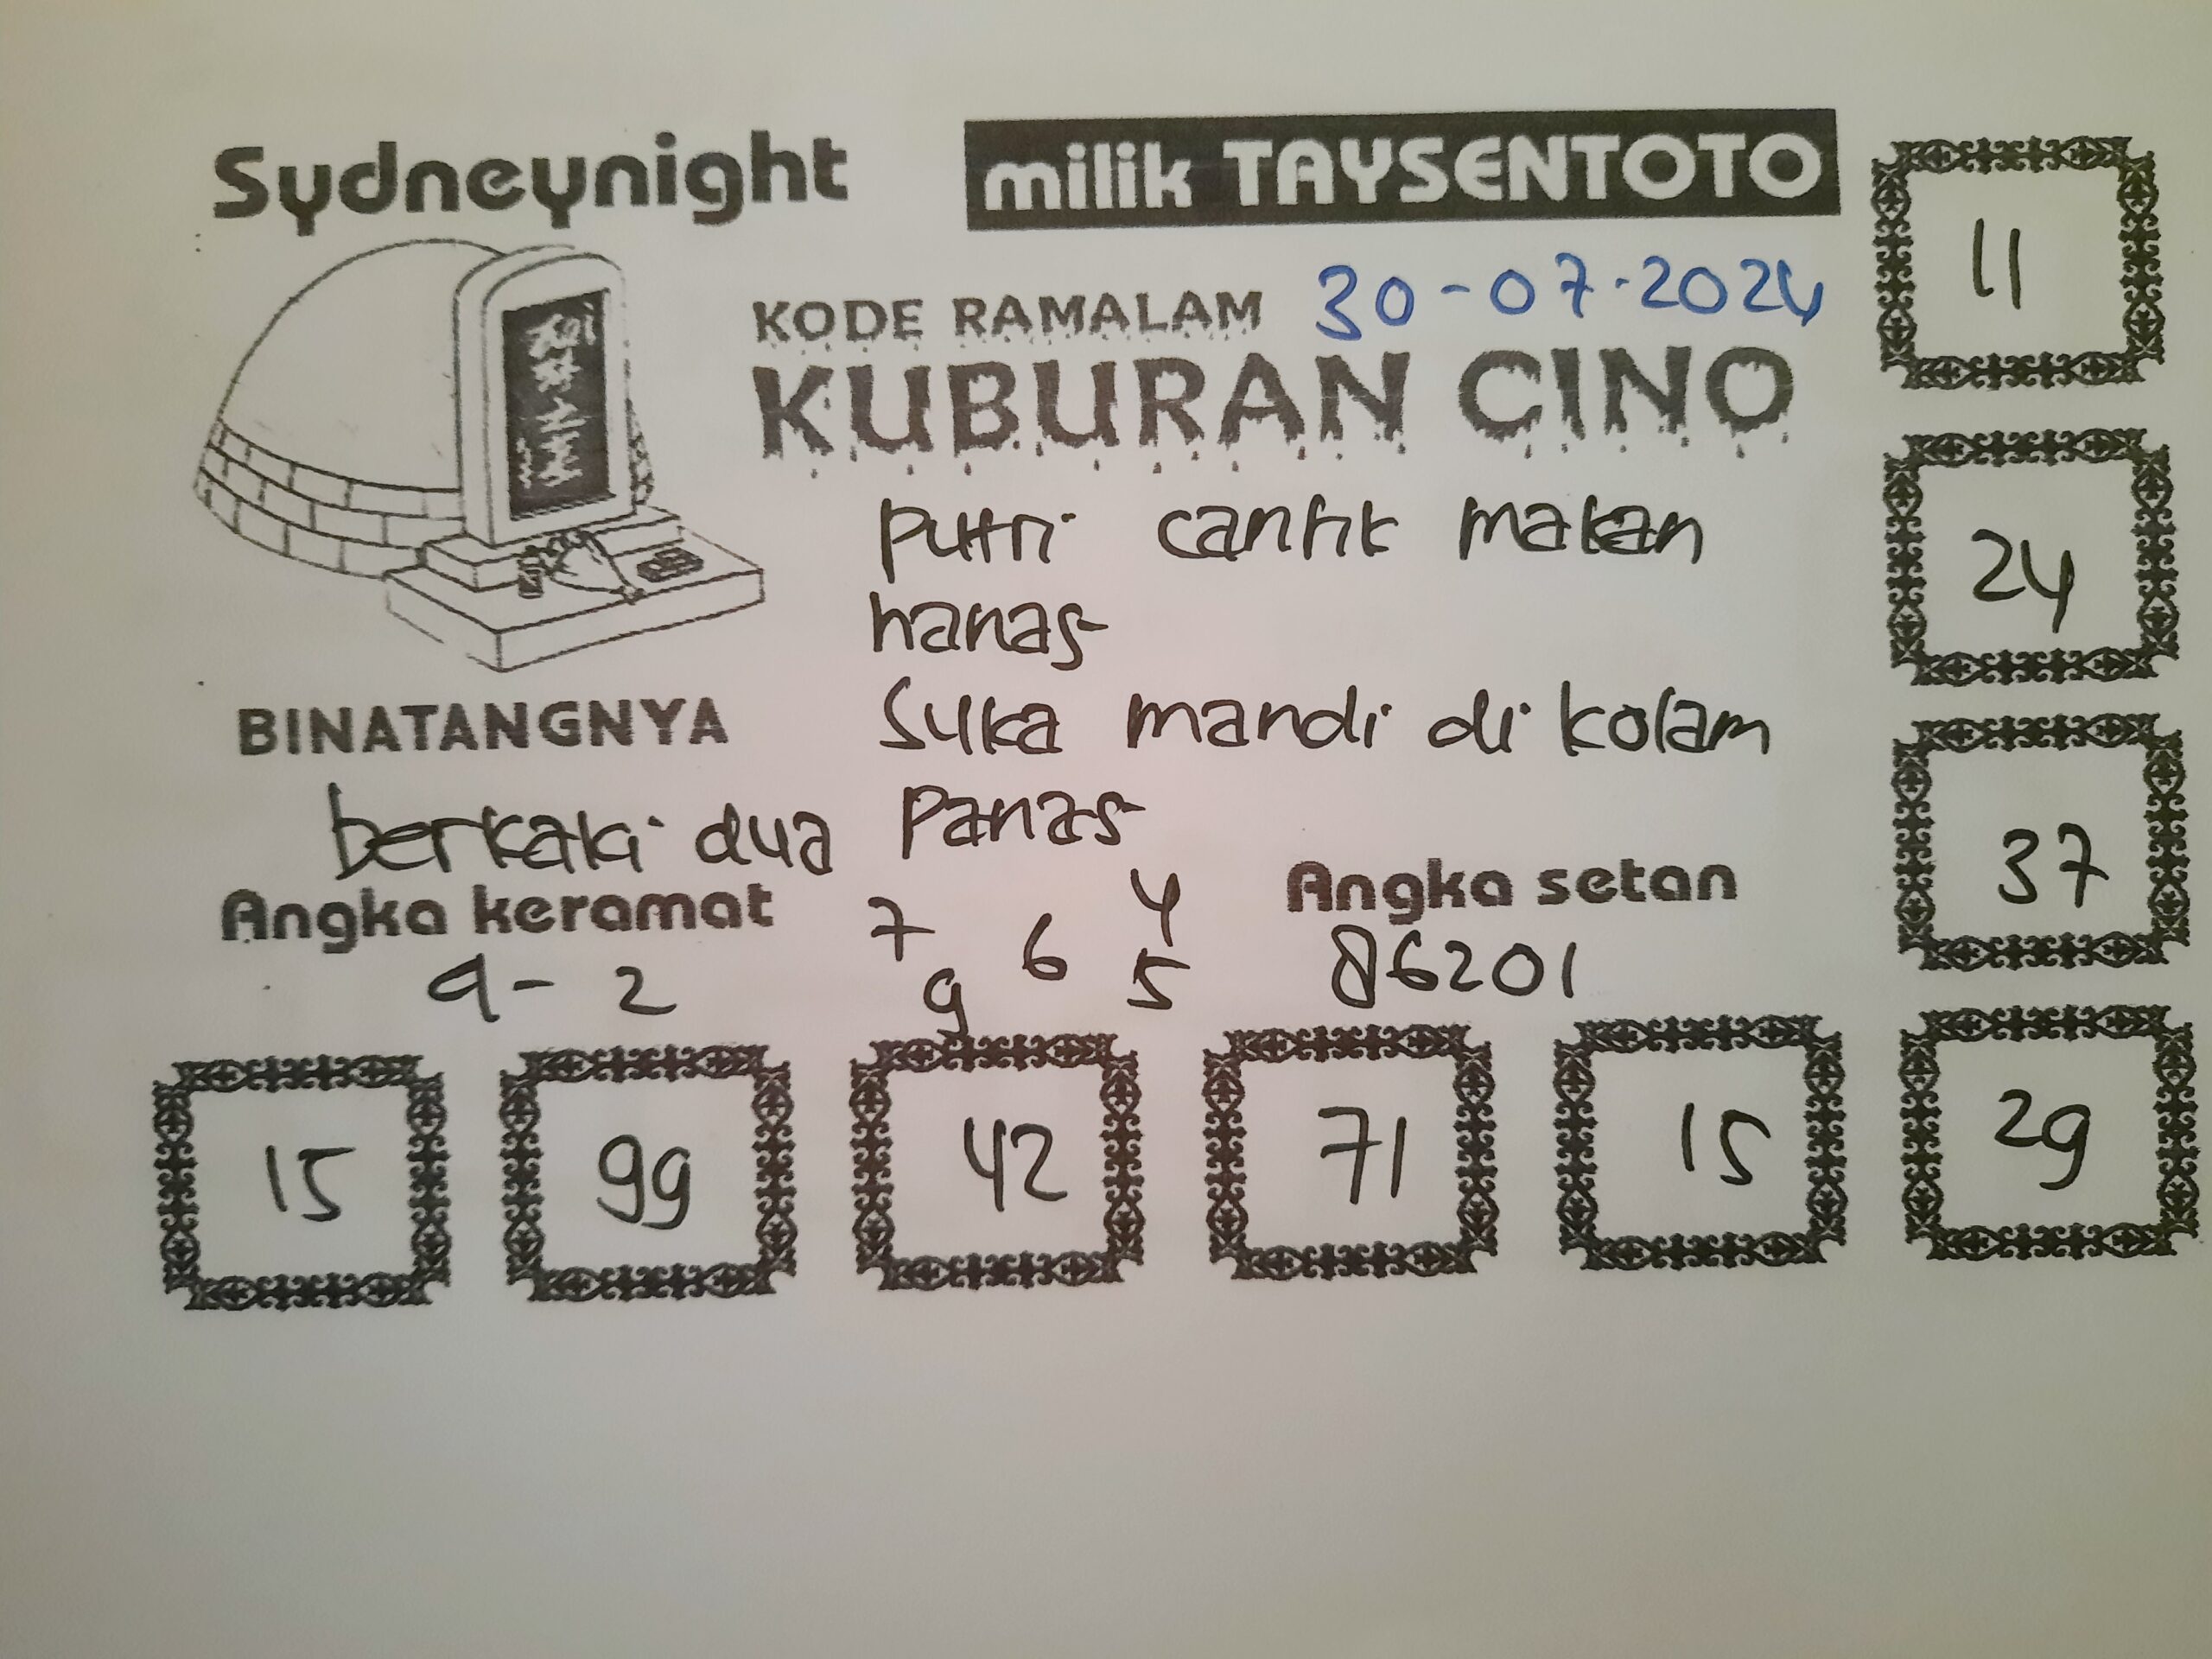 Sydneynight
milik TAYSENTOTO
KODE RAMALAM 30-07-2024
KUBURAN CINO
putri cantik makan
nanas
Suka mandi di kolam
Panas
BINATANGNYA
berkaki dua
Angka keramat
9 - 2
7 6 4
9 5
Angka setan
86201
11
24
37
15 99 42 71 15 29